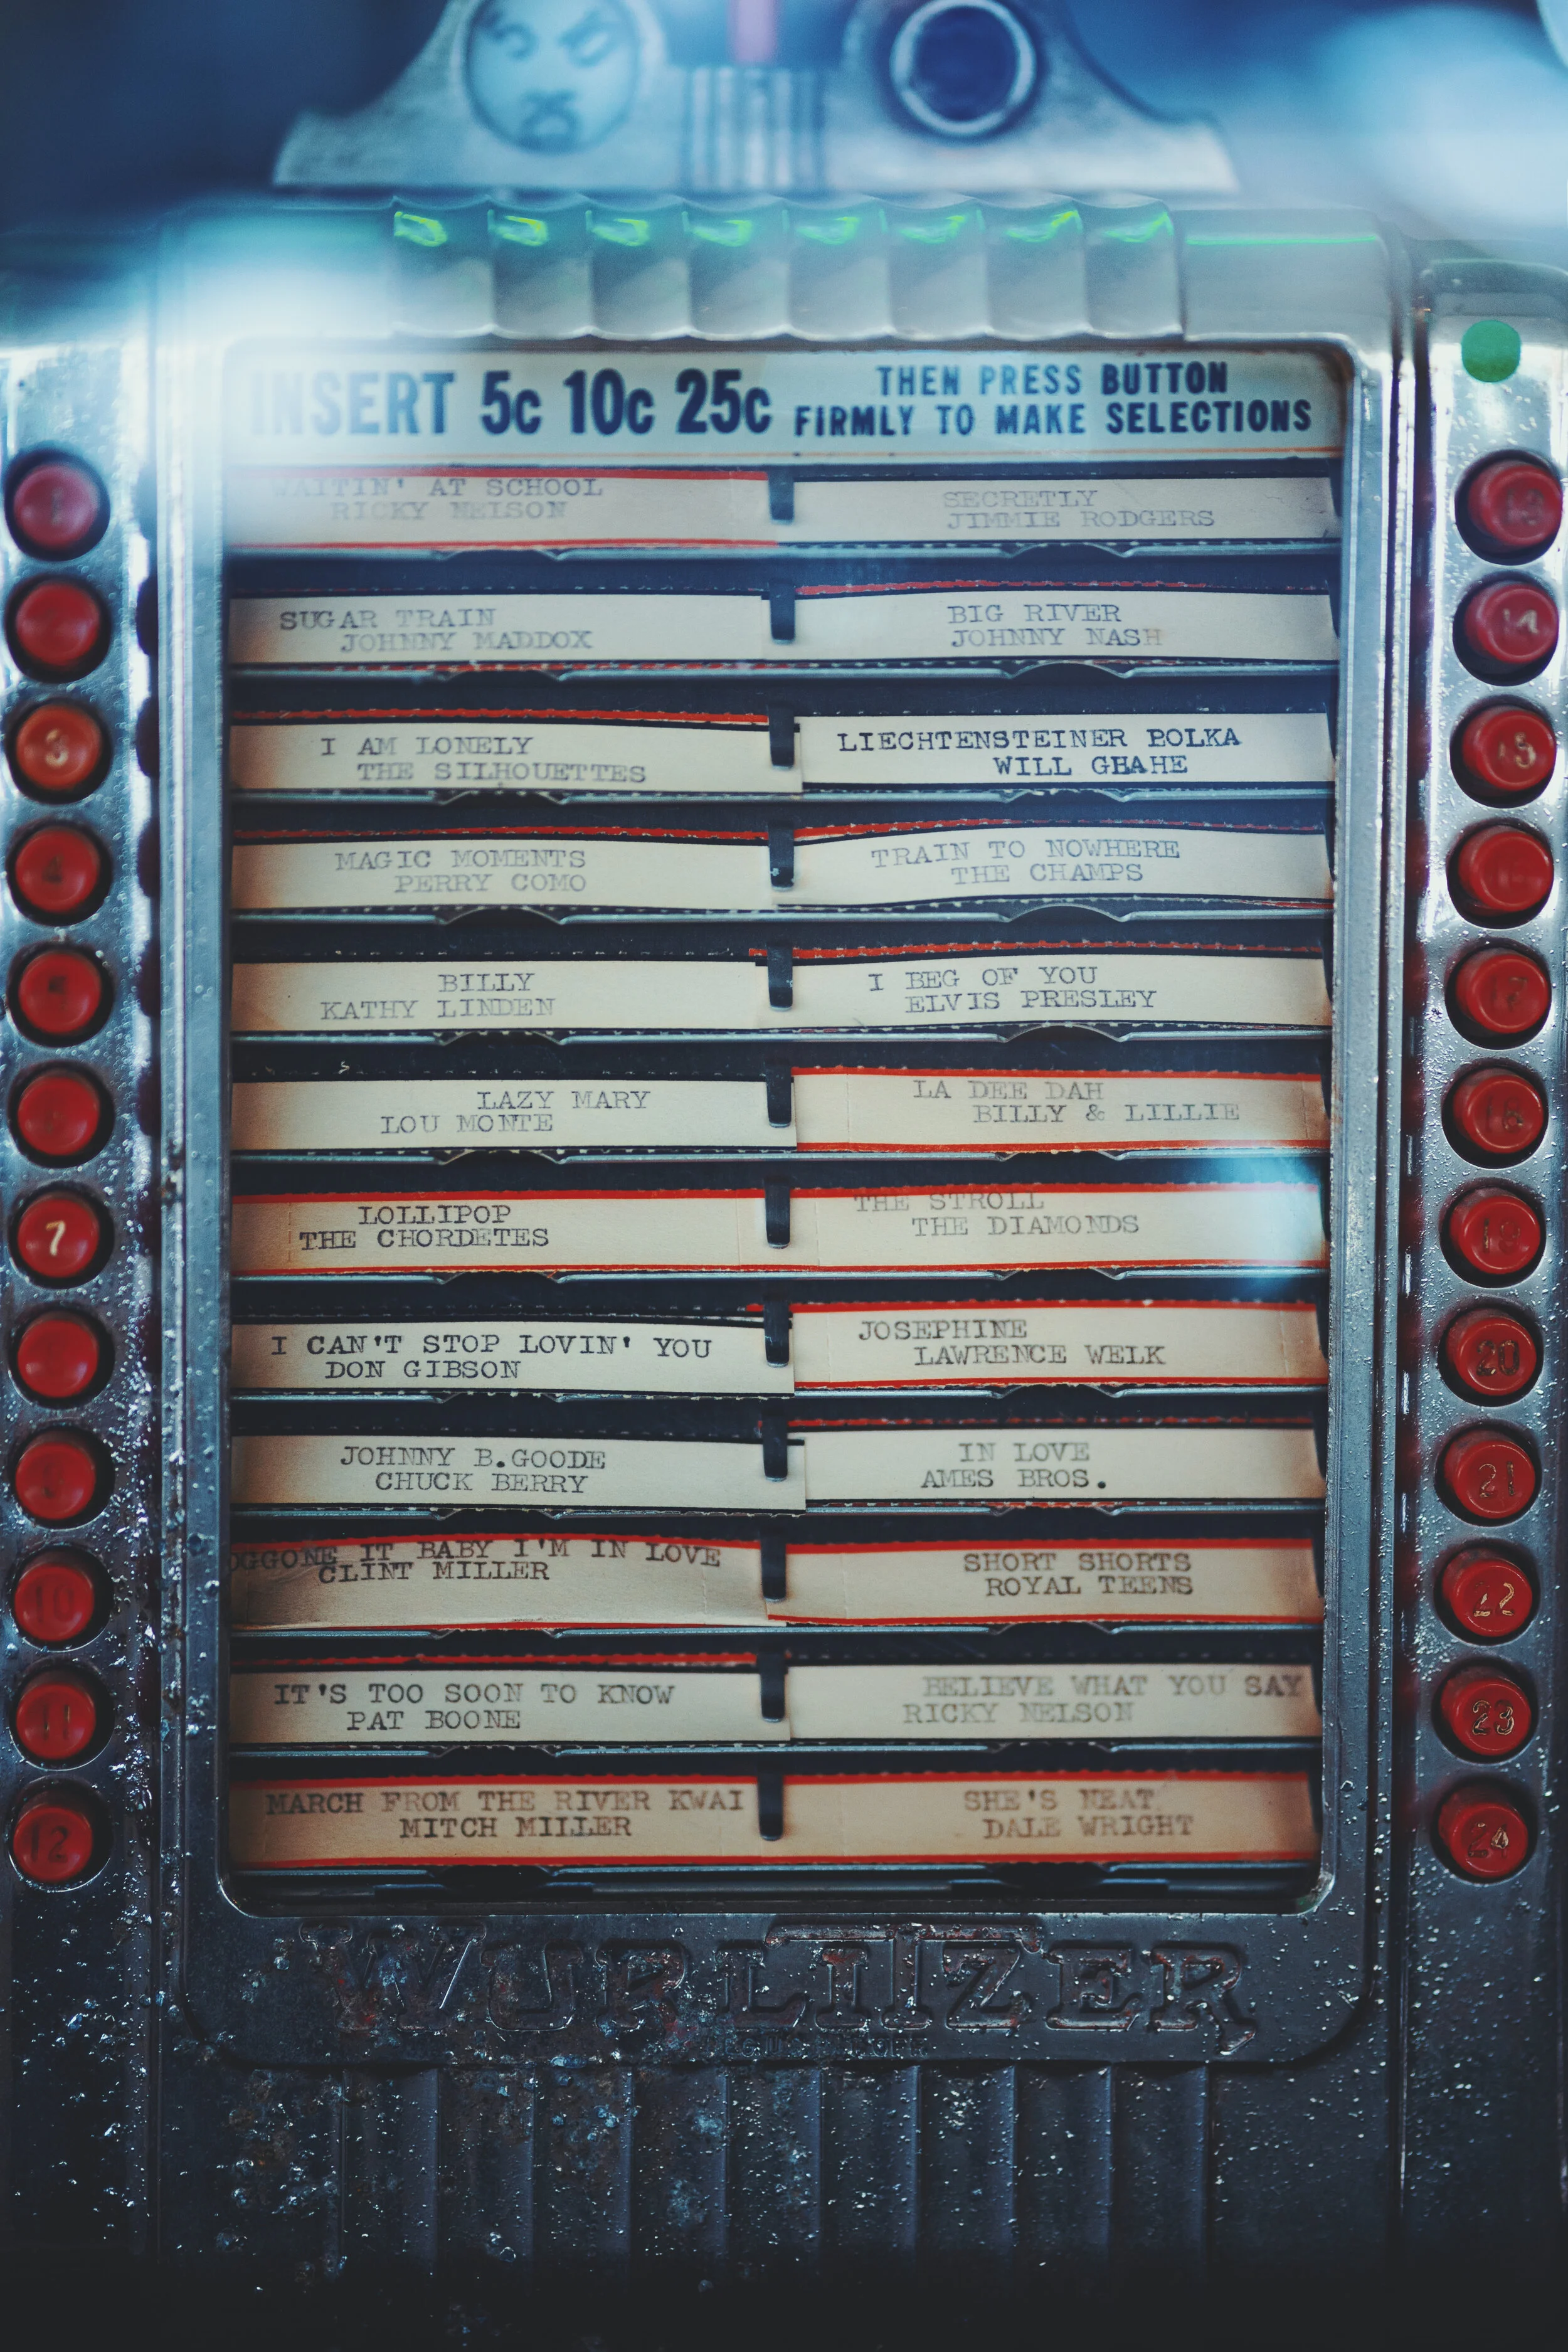 INSERT 5c 10c 25c
THEN PRESS BUTTON
FIRMLY TO MAKE SELECTIONS
1
WAITIN' AT SCHOOL
RICKY NELSON
SECRETLY
JIMMIE RODGERS
13
SUGAR TRAIN
JOHNNY MADDOX
BIG RIVER
JOHNNY NASH
14
3
I AM LONELY
THE SILHOUETTES
LIECHTENSTEINER POLKA
WILL GHAHE
15
4
MAGIC MOMENTS
PERRY COMO
TRAIN TO NOWHERE
THE CHAMPS
BILLY
KATHY LINDEN
I BEG OF YOU
ELVIS PRESLEY
17
LAZY MARY
LOU MONTE
LA DEE DAH
BILLY & LILLIE
18
7
LOLLIPOP
THE CHORDETES
THE STROLL
THE DIAMONDS
19
I CAN'T STOP LOVIN' YOU
DON GIBSON
JOSEPHINE
LAWRENCE WELK
20
9
JOHNNY B.GOODE
CHUCK BERRY
IN LOVE
AMES BROS.
21
10
OGGONE IT BABY I'M IN LOVE
CLINT MILLER
SHORT SHORTS
ROYAL TEENS
22
11
IT'S TOO SOON TO KNOW
PAT BOONE
BELIEVE WHAT YOU SAY
RICKY NELSON
23
12
MARCH FROM THE RIVER KWAI
MITCH MILLER
SHE'S NEAT
DALE WRIGHT
24
WURLITZER